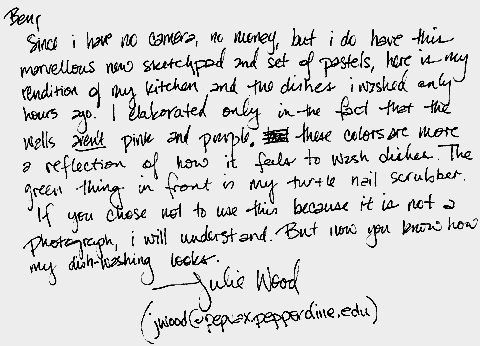 Ben,
Since i have no camera, no money, but i do have this
marvellous new sketchpad and set of pastels, here is my
rendition of my kitchen and the dishes i washed only
hours ago. I elaborated only in the fact that the
walls aren't pink and purple. these colors are more
a reflection of how it feels to wash dishes. The
green thing in front is my turtle nail scrubber.
If you chose not to use this because it is not a
photograph, i will understand. But now you know how
my dish-washing looks.
Julie Wood
(jwood@pepvax.pepperdine.edu)